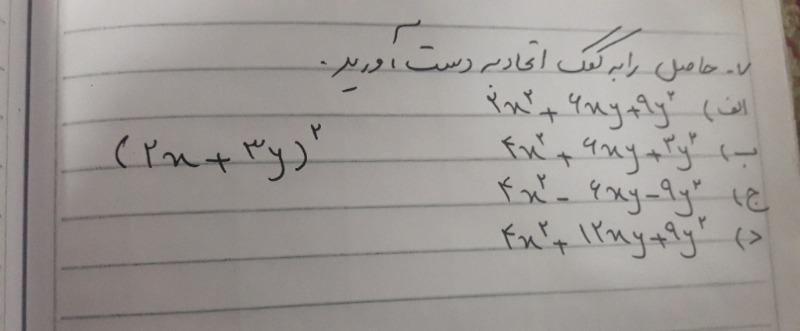 ۷- حاصل را به کمک اتحاد به دست آورید.
(۲x + ۳y)^۲
الف) ۲x^۲ + ۶xy + ۹y^۲
ب) ۴x^۲ + ۹xy + ۳y^۲
ج) ۴x^۲ - ۶xy - ۹y^۲
د) ۴x^۲ + ۱۲xy + ۹y^۲